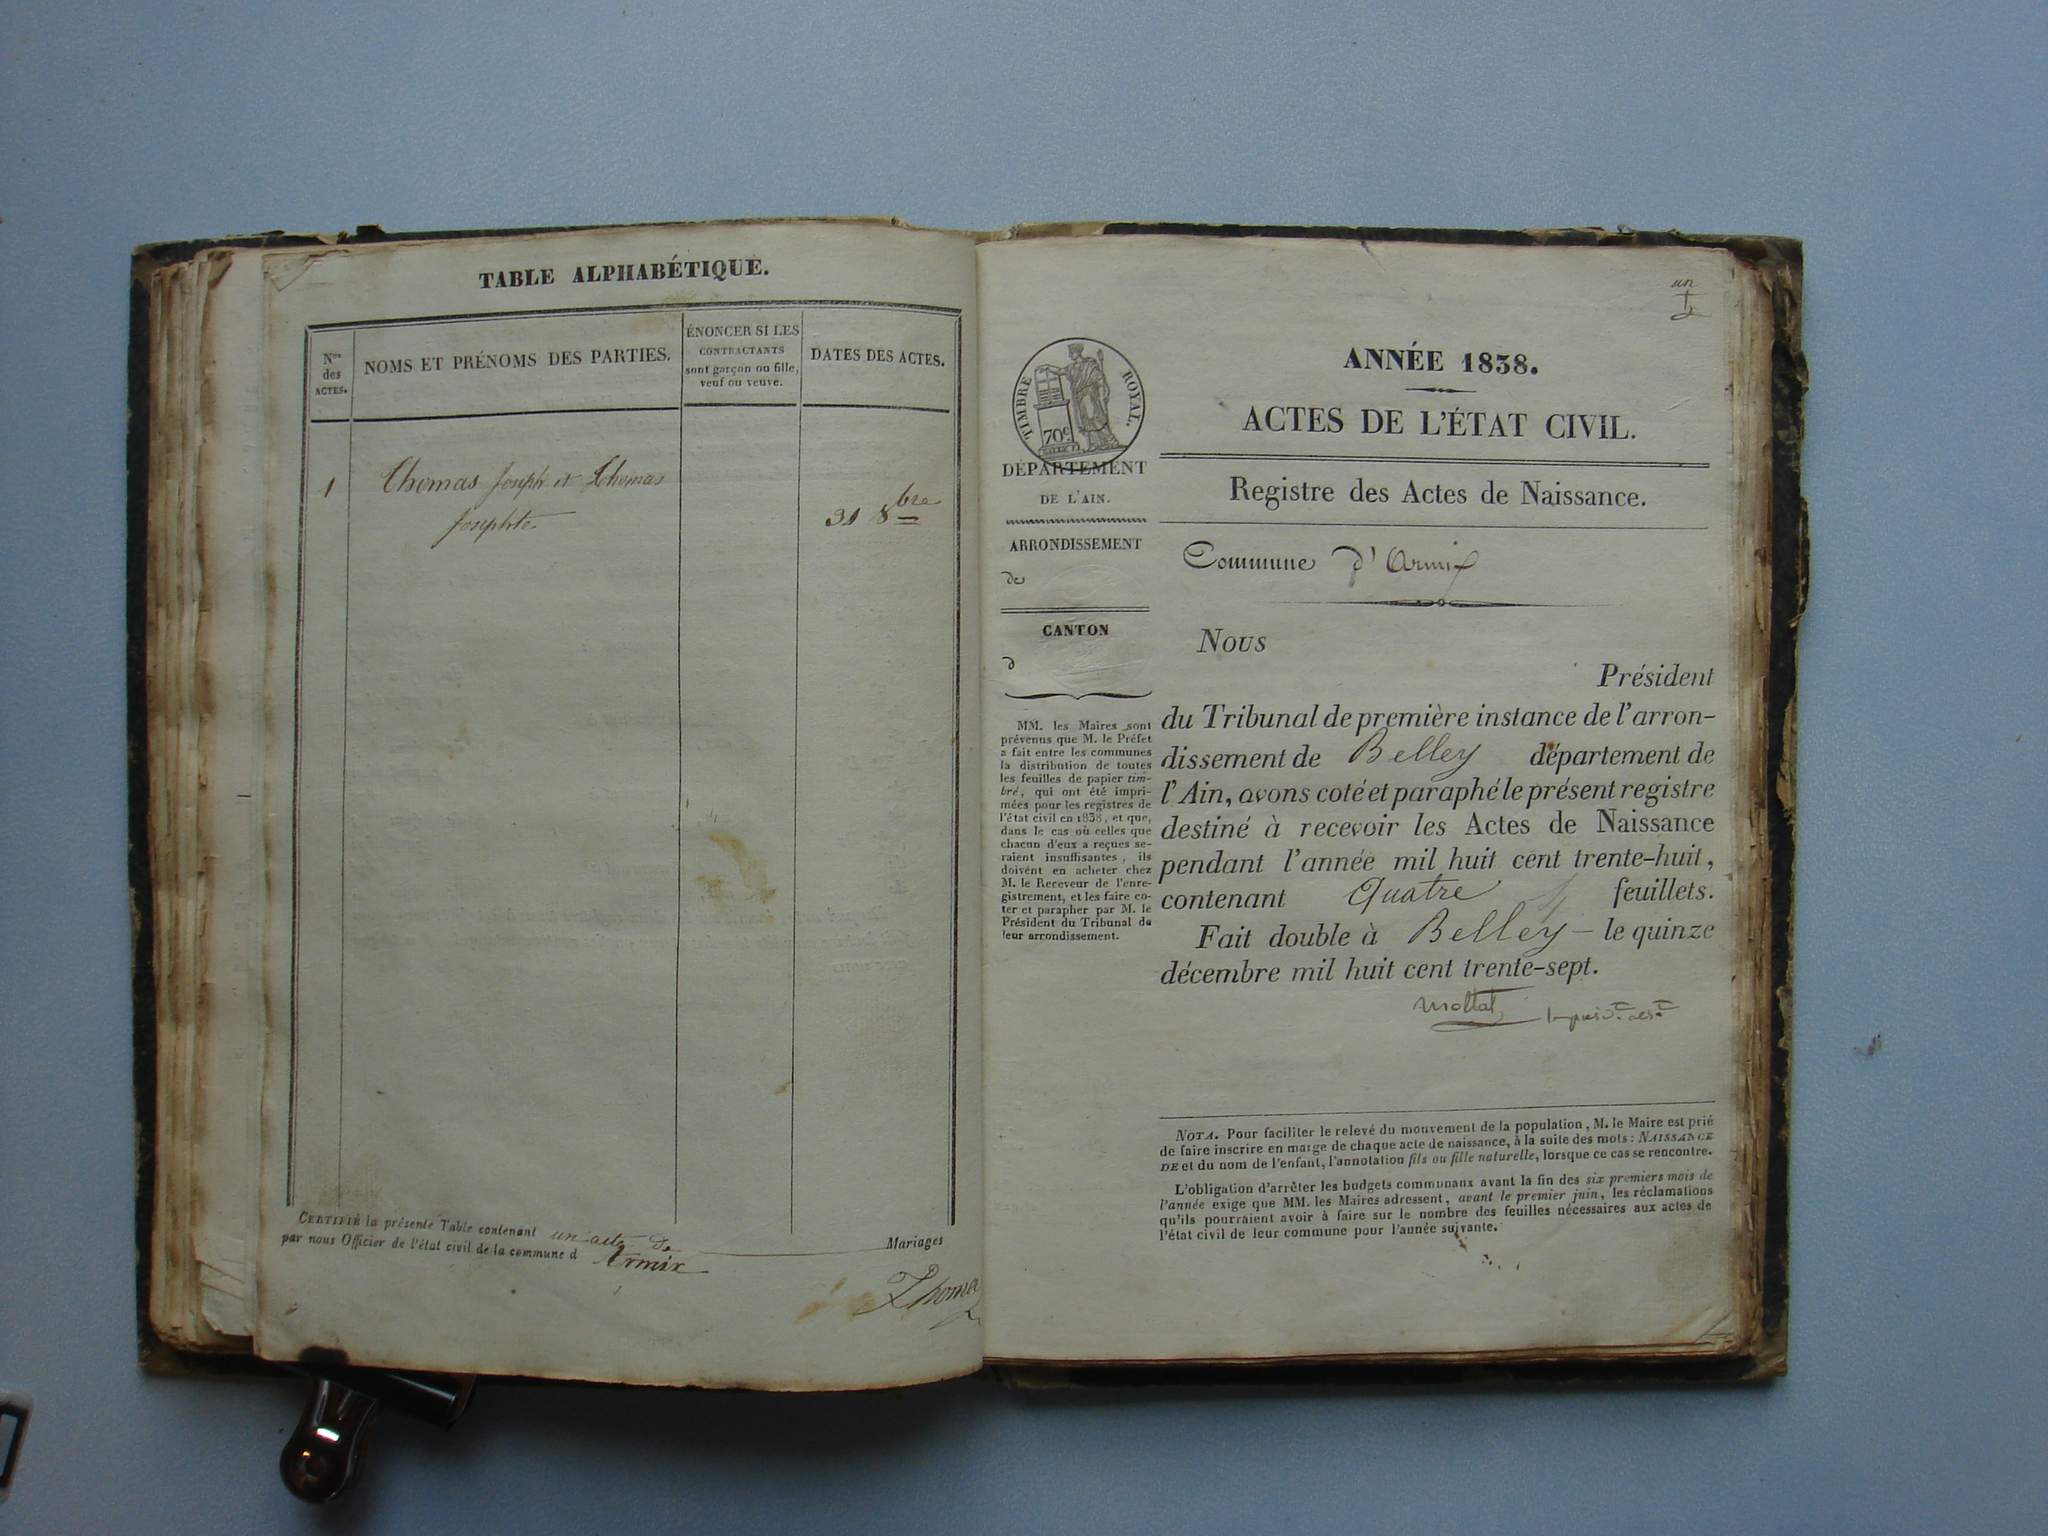 TABLE ALPHABÉTIQUE.
Nos des ACTES.
NOMS ET PRÉNOMS DES PARTIES.
ÉNONCER SI LES
CONTRACTANTS
sont garçon ou fille,
veuf ou veuve.
DATES DES ACTES.
1 Thomas Joseph et Thomas
Josephte 31 8bre
CERTIFIÉ la présente Table contenant un acte de Mariages
par nous Officier de l'état civil de la commune d Armix
Thomas
un
TIMBRE ROYAL.
70c
DÉPARTEMENT
DE L'AIN.
ARRONDISSEMENT
de
CANTON
d
MM. les Maires sont
prévenus que M. le Préfet
a fait entre les communes
la distribution de toutes
les feuilles de papier tim-
bré, qui ont été impri-
mées pour les registres de
l'état civil en 1838, et que,
dans le cas où celles que
chacun d'eux a reçues se-
raient insuffisantes, ils
doivent en acheter chez
M. le Receveur de l'enre-
gistrement, et les faire co-
ter et parapher par M. le
Président du Tribunal de
leur arrondissement.
ANNÉE 1838.
ACTES DE L'ÉTAT CIVIL.
Registre des Actes de Naissance.
Commune d'Armix
NOUS
Président
du Tribunal de première instance de l'arron-
dissement de Belley département de
l'Ain, avons coté et paraphé le présent registre
destiné à recevoir les Actes de Naissance
pendant l'année mil huit cent trente-huit,
contenant Quatre 4 feuillets.
Fait double à Belley — le quinze
décembre mil huit cent trente-sept.
NOTA. Pour faciliter le relevé du mouvement de la population, M. le Maire est prié
de faire inscrire en marge de chaque acte de naissance, à la suite des mots: NAISSANCE
DE et du nom de l'enfant, l'annotation fils ou fille naturelle, lorsque ce cas se rencontre.
L'obligation d'arrêter les budgets communaux avant la fin des six premiers mois de
l'année exige que MM. les Maires adressent, avant le premier juin, les réclamations
qu'ils pourraient avoir à faire sur le nombre des feuilles nécessaires aux actes de
l'état civil de leur commune pour l'année suivante.